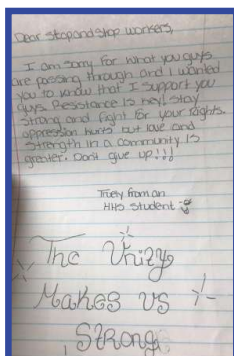 Dear stop and stop workers,
I am sorry for what you guys
are passing through and I wanted
you to know that I support you
guys. Resistance is key! stay
strong and fight for your rights.
oppression hurts but love and
strength in a community is
greater. Dont give up!!!
Truely from an
HHS student
The Unity
Makes us
Strong